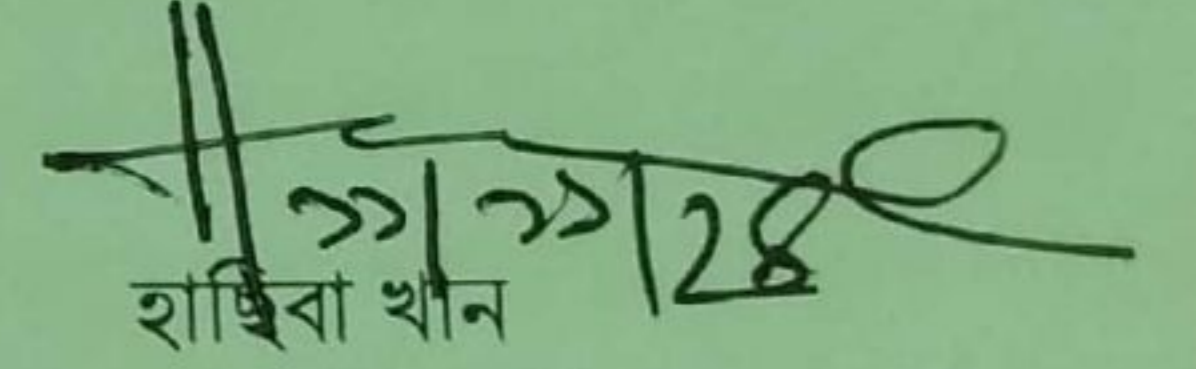 ১১/১১/২৪
হাছিবা খান